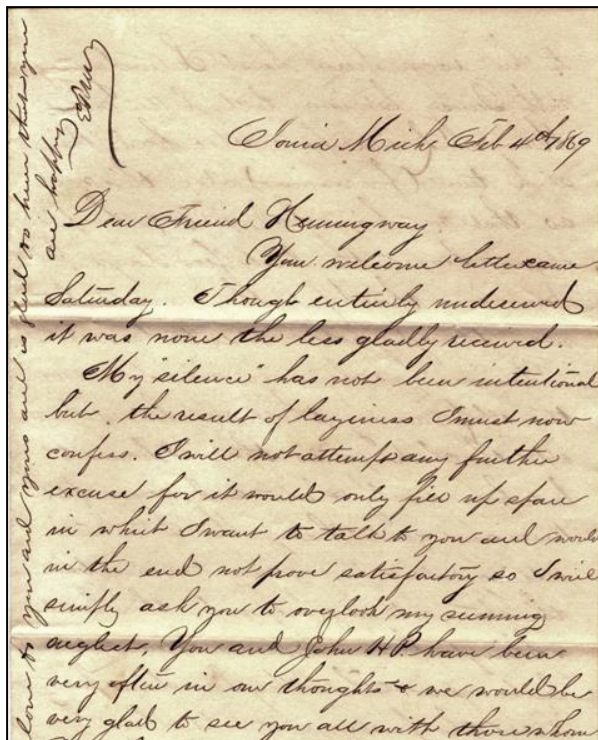 Ionia Mich Feb 4th 1869
Dear Friend Hemingway
Your welcome letter came
Saturday. Though entirely undeserved
it was none the less gladly received.
My "silence" has not been intentional
but, the result of laziness I must now
confess. I will not attempt any further
excuse for it would only fill up space
in which I want to talk to you and would
in the end not prove satisfactory so I will
simply ask you to overlook my seeming
neglect, You and John H P. have been
very often in our thoughts & we would be
very glad to see you all with those whom
love to you and yours and is glad to hear that you
are happy